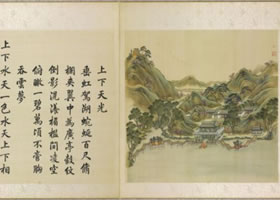 上下天光
垂虹駕湖蜿蜒百尺脩
欄夾翼中為廣亭縠紋
倒影滉漾楣檻間凌空
俯瞰一碧萬頃不啻胸
吞雲夢
上下水天一色水天上下相